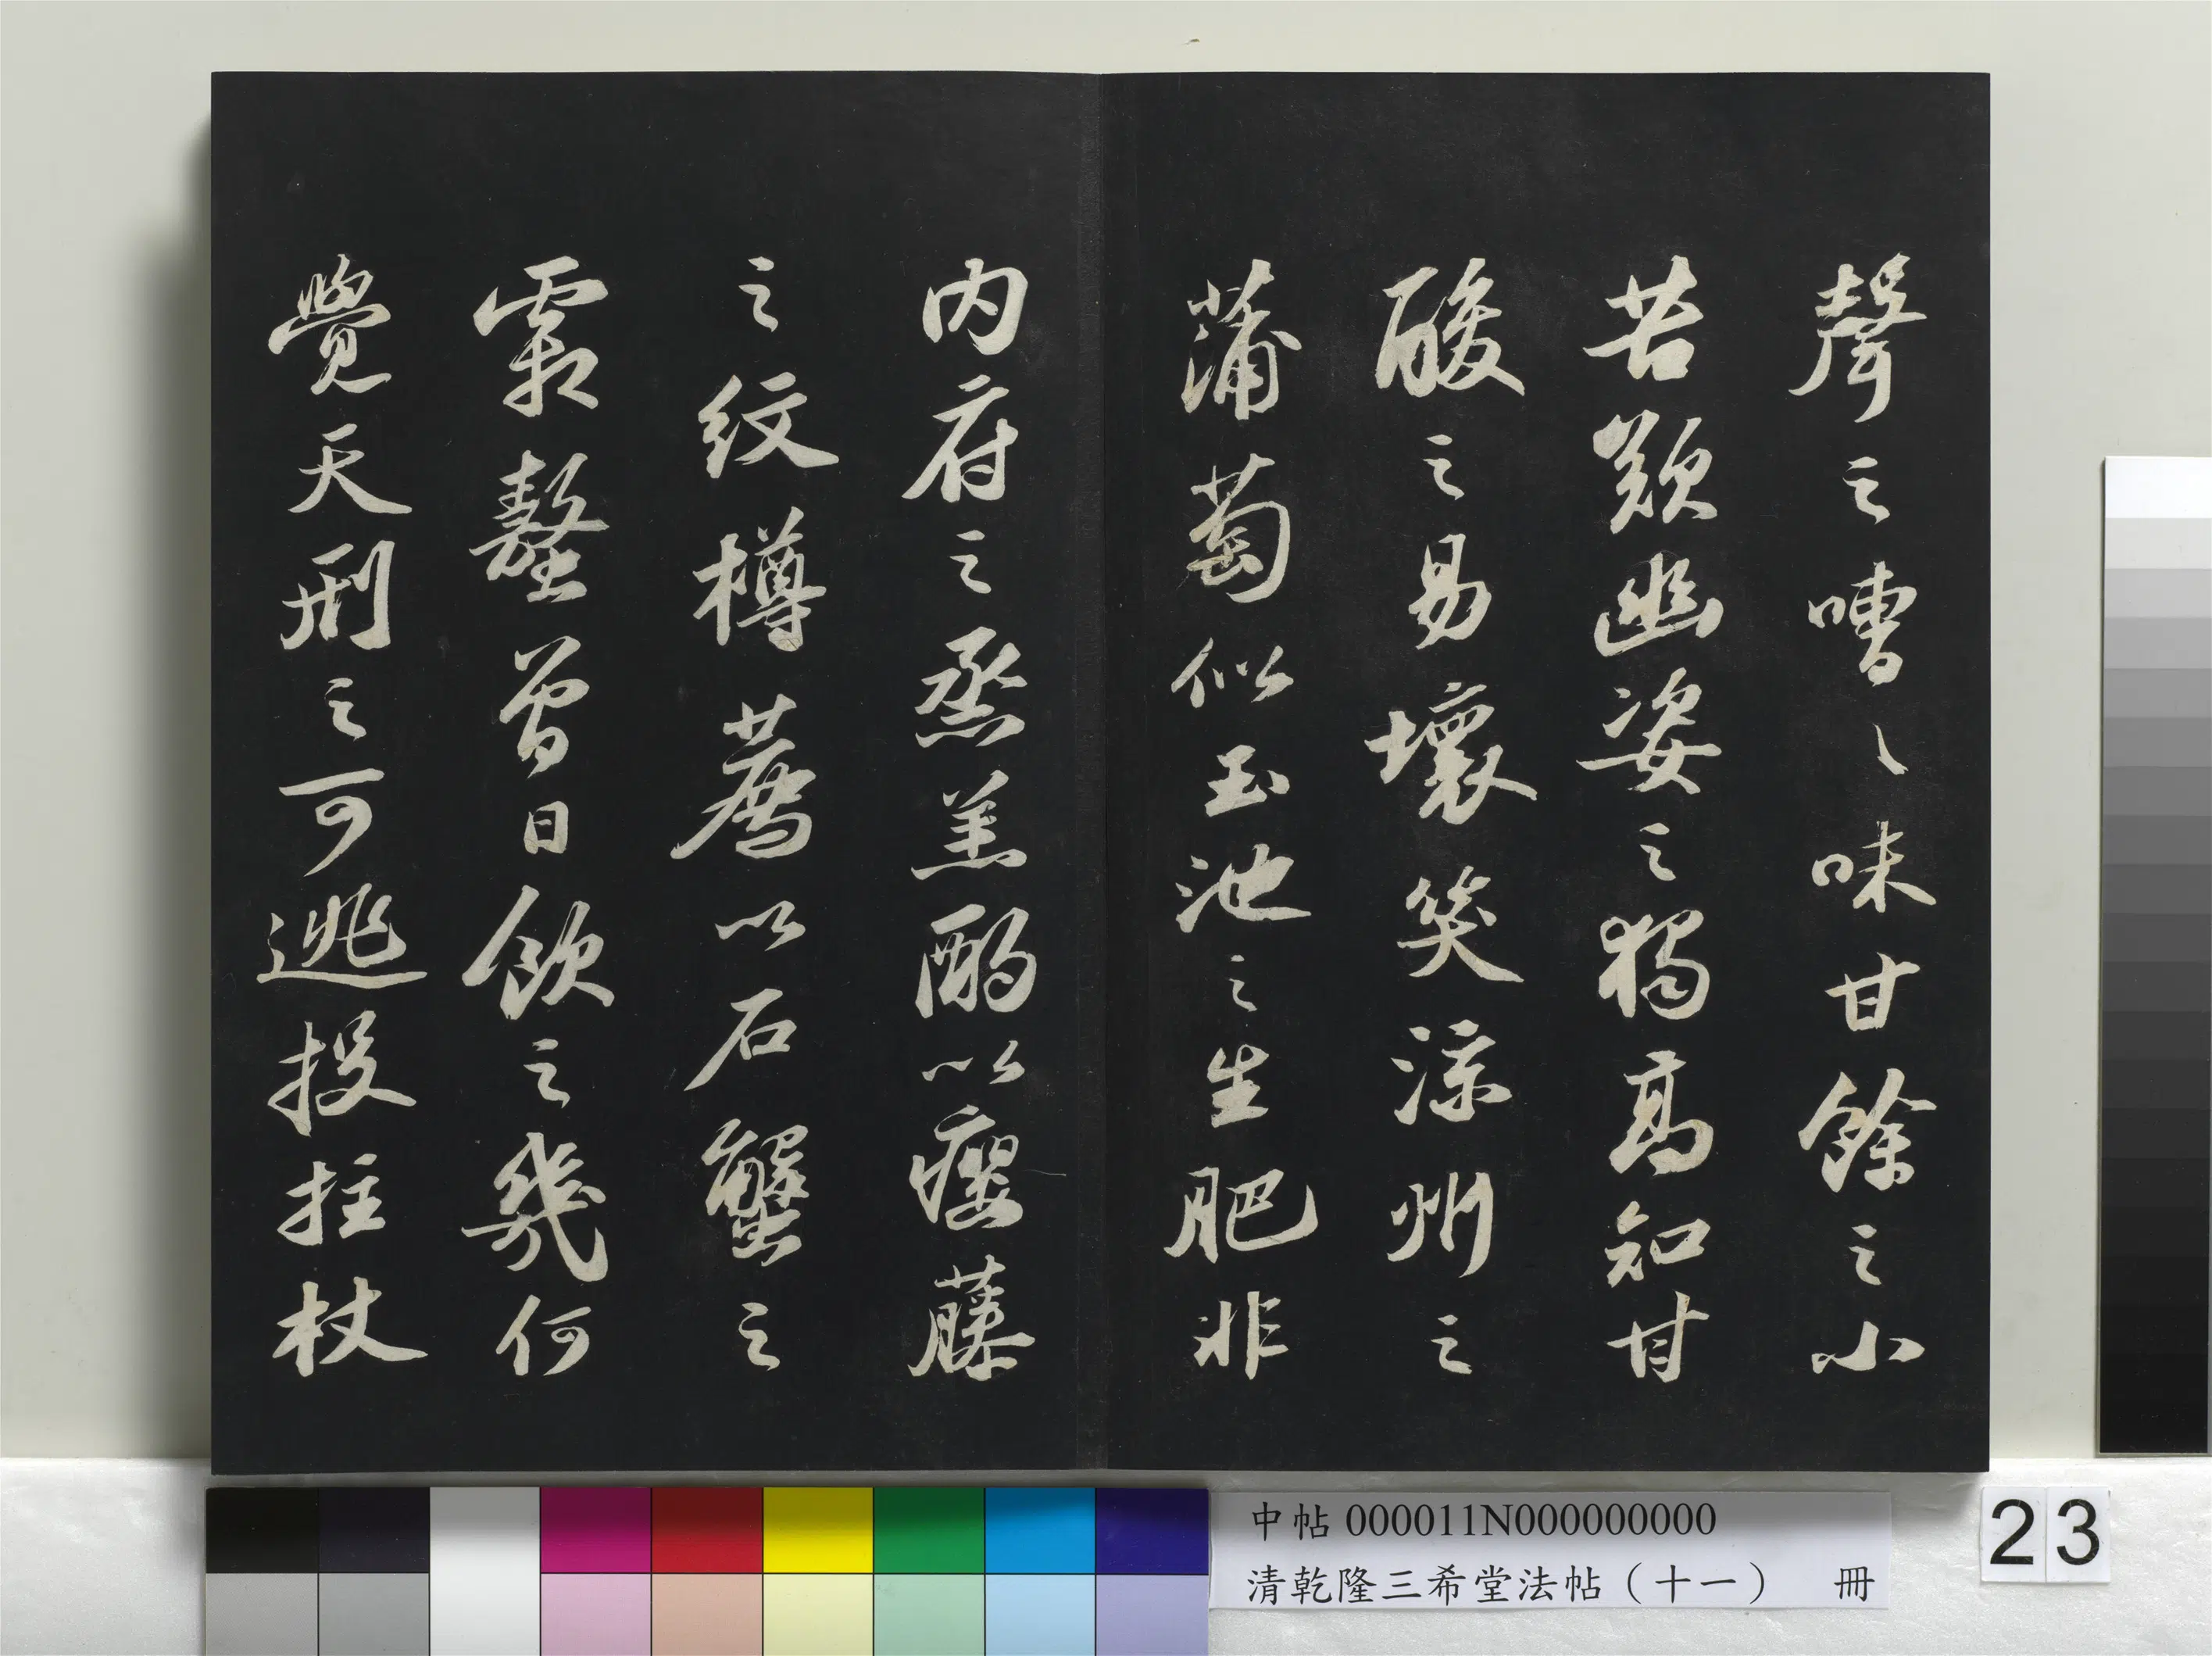 聲之嘈〻味甘餘之小
苦歎幽姿之獨高知甘
酸之易壞笑涼州之
蒲萄似玉池之生肥非
內府之烝羔酌以癭藤
之紋樽薦以石蟹之
霜螯曾日飲之幾何
覺天刑之可逃投拄杖
中帖 000011N000000000
清乾隆三希堂法帖（十一） 冊
23